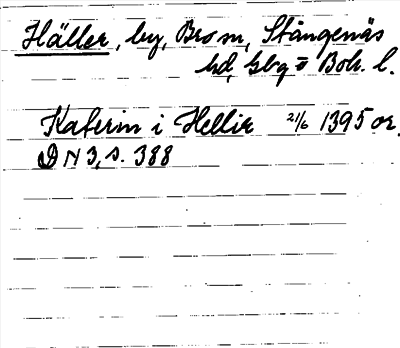 Häller, by, Bro sn, Stångenäs
hd, Gbg o Boh. l.
Katerin i Hellir 21/6 1395 or.
DN 3, s. 388